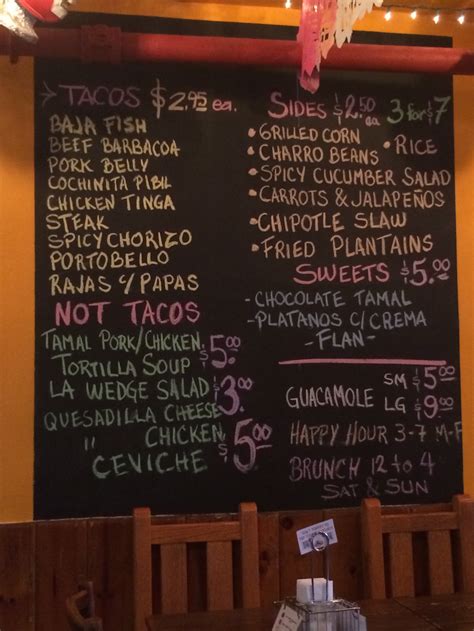 TACOS $2.95 ea.
BAJA FISH
BEEF BARBACOA
PORK BELLY
COCHINITA PIBIL
CHICKEN TINGA
STEAK
SPICY CHORIZO
PORTOBELLO
RAJAS C/ PAPAS
NOT TACOS
TAMAL PORK/CHICKEN
TORTILLA SOUP $5.00
LA WEDGE SALAD
QUESADILLA CHEESE $3.00
" CHICKEN
CEVICHE $5.00
SIDES $2.50 ea 3 for $7
• GRILLED CORN
• RICE
• CHARRO BEANS
• SPICY CUCUMBER SALAD
• CARROTS & JALAPEÑOS
• CHIPOTLE SLAW
• FRIED PLANTAINS
SWEETS $5.00
- CHOCOLATE TAMAL
- PLATANOS C/ CREMA
- FLAN -
GUACAMOLE SM $5.00
LG $9.00
HAPPY HOUR 3-7 M-F
BRUNCH 12 to 4
SAT & SUN